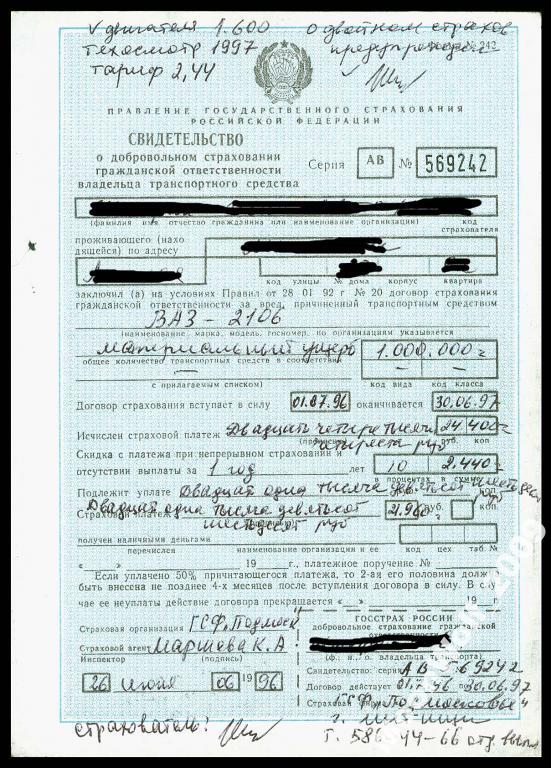 V двигателя 1.600 о двойном страхов
техосмотр 1997
тариф 2,44
ПРАВЛЕНИЕ ГОСУДАРСТВЕННОГО СТРАХОВАНИЯ
РОССИЙСКОЙ ФЕДЕРАЦИИ
СВИДЕТЕЛЬСТВО
о добровольном страховании
гражданской ответственности
владельца транспортного средства
Серия АВ № 569242
(фамилия имя отчество гражданина или наименование организации) код
страхователя
проживающего (нахо-
дящейся) по адресу
код улицы № дома корпус квартира
заключил (а) на условиях Правил от 28 01 92 г № 20 договор страхования
гражданской ответственности за вред, причиненный транспортным средством
ВАЗ – 2106
(наименование марка, модель, госномер, по организациям указывается
материальный ущерб 1.000.000
общее количество транспортных средств в соответствии — —
с прилагаемым списком) код вида код класса
Договор страхования вступает в силу 01.07.96 оканчивается 30.06.97
Двадцать четыре тысячи 24.400
Исчислен страховой платеж руб. коп.
четыреста руб
Скидка с платежа при непрерывном страховании и
отсутствии выплаты за 1 год лет 10 2.440
в процентах в сумме
Подлежит уплате Двадцат одна тысяча девятьсот шестьдесят
руб
Двадцат одна тысяча девятьсот 21.960
Страховой платеж руб. коп.
шестьдесят руб
получен наличными деньгами код цех таб. №
перечислен наименование организации и ее
« » 19 г., платежное поручение №
Если уплачено 50% причитающегося платежа, то 2-ая его половина долж
быть внесена не позднее 4-х месяцев после вступления договора в силу. В
чае ее неуплаты действие договора прекращается « » 19 г
Страховая организация ГСФ. Подмоск
Страховой агент Маршева К. А
Инспектор (подпись)
26 июня 06 19 96
ГОССТРАХ РОССИИ
добровольное страхование гражданской
ответственности
(ф. и. о. владельца транспорта)
Свидетельство: серии АВ 569242
Договор действует 01.7.96 по 30.06.97
Страховая
ГСФ. „Подмосковье"
страхователь:
т. 586-44-66 отд выпл